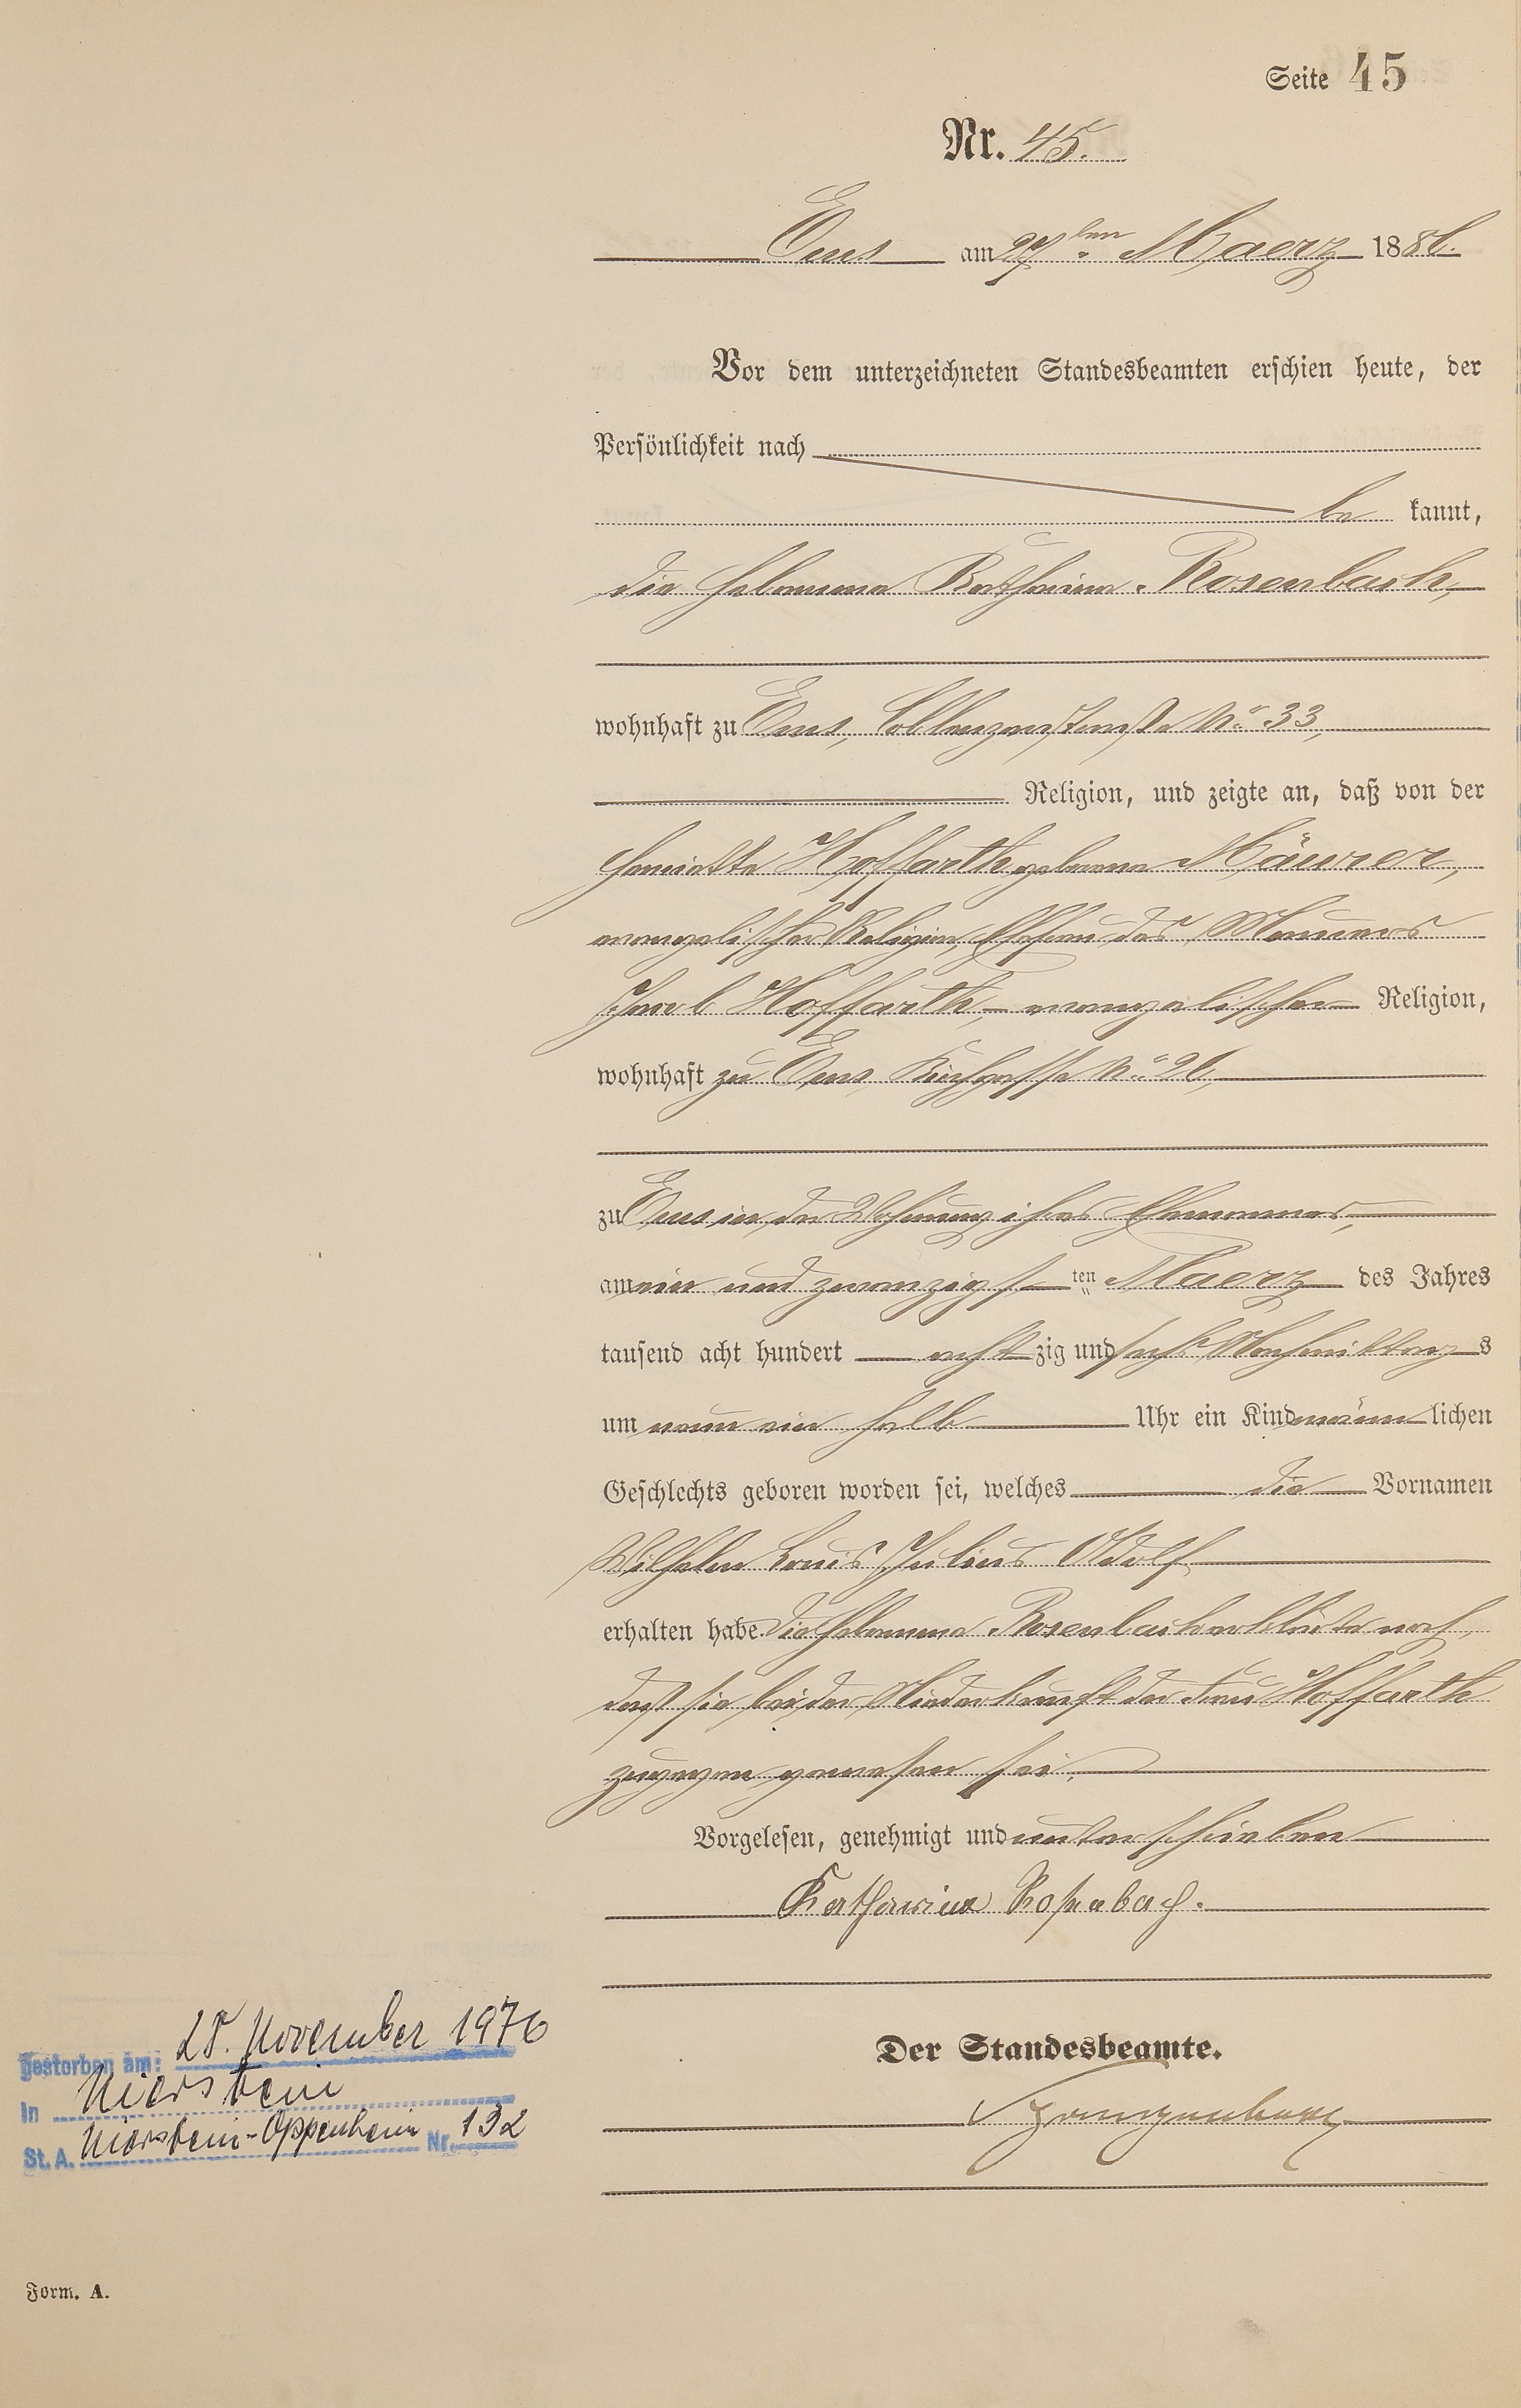 Seite 45
Nr. 45.
Ems am 27ten Maerz 1886.
Vor dem unterzeichneten Standesbeamten erschien heute, der
Persönlichkeit nach
be kannt,
die Hebamme Katharina Rosenbach,
wohnhaft zu Ems, Coblenzerstraße No. 33,
Religion, und zeigte an, daß von der
Henriette Hoffarth geborene Mäurer,
evangelischer Religion, Ehefrau des Maurers
Jacob Hoffarth, evangelischer Religion,
wohnhaft zu Ems, Kirchgasse No. 26,
zu Ems in der Wohnung ihres Ehemannes,
am ein und zwanzigsten Maerz des Jahres
tausend acht hundert achtzig und sechs Nachmittags
um neun ein halb Uhr ein Kind männlichen
Geschlechts geboren worden sei, welches die Vornamen
Wilhelm Louis Julius Adolf
erhalten habe. Die Hebamme Rosenbach erklärte noch,
daß sie bei der Niederkunft der Frau Hoffarth
zugegen gewesen sei.
Vorgelesen, genehmigt und unterschrieben
Katharina Rosenbach.
Der Standesbeamte.
gestorben am: 28. November 1976
In Nierstein
St. A. Nierstein-Oppenheim Nr. 132
Form. A.